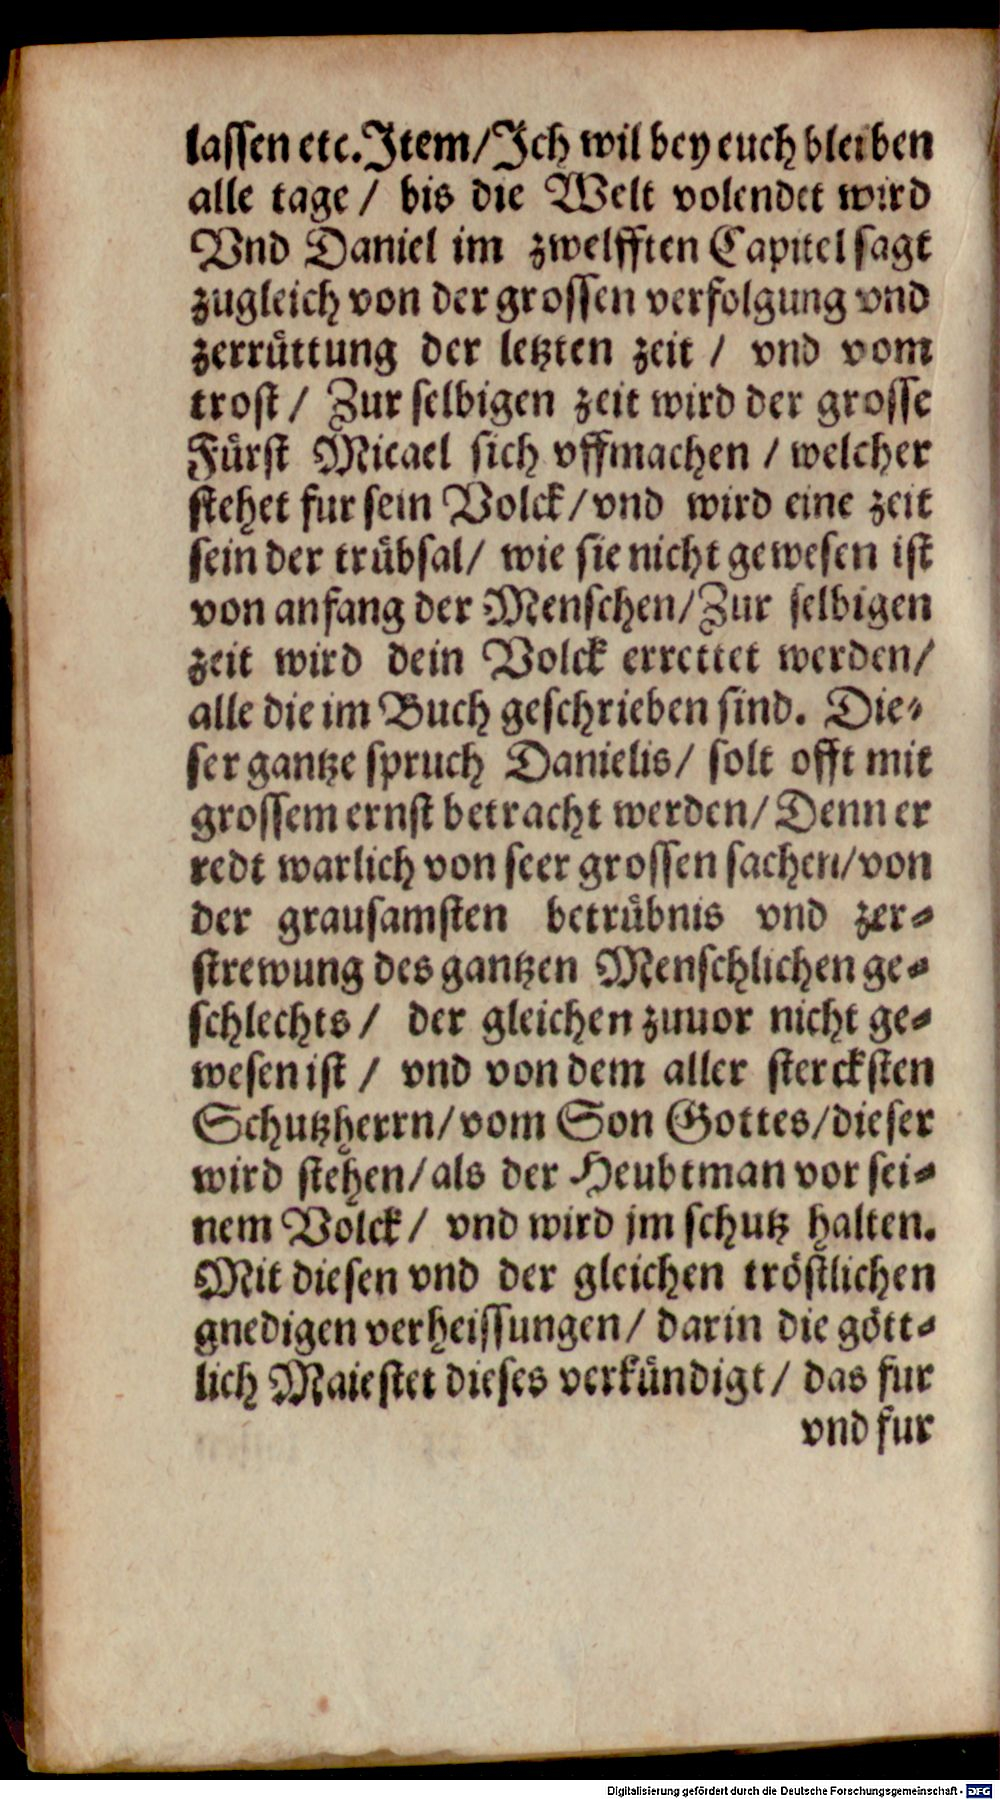 lassen etc. Jtem/Jch wil bey euch bleiben
alle tage / bis die Welt volendet wird
Vnd Daniel im zwelfften Capitel sagt
zugleich von der grossen verfolgung vnd
zerrüttung der letzten zeit / vnd vom
trost / Zur selbigen zeit wird der grosse
Fürst Micael sich vffmachen / welcher
stehet fur sein Volck/vnd wird eine zeit
sein der trübsal/ wie sie nicht gewesen ist
von anfang der Menschen/Zur selbigen
zeit wird dein Volck errettet werden/
alle die im Buch geschrieben sind. Die-
ser gantze spruch Danielis/ solt offt mit
grossem ernst betracht werden/ Denn er
redt warlich von seer grossen sachen/von
der grausamsten betrübnis vnd zer-
strewung des gantzen Menschlichen ge-
schlechts / der gleichen zuuor nicht ge-
wesen ist / vnd von dem aller stercksten
Schutzherrn/vom Son Gottes/dieser
wird stehen/als der Heubtman vor sei-
nem Volck / vnd wird jm schutz halten.
Mit diesen vnd der gleichen tröstlichen
gnedigen verheissungen/ darin die gött-
lich Maiestet dieses verkündigt/ das fur
vnd fur
Digitalisierung gefördert durch die Deutsche Forschungsgemeinschaft - DFG